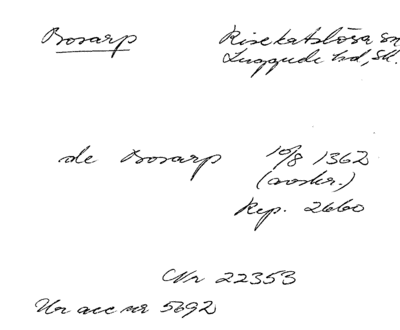 Bosarp Risekatslösa sn
Luggude hd, Sk.
de Bosarp 10/8 1362
(avskr.)
Rep. 2660
Nr 22353
Ur acc nr 5692